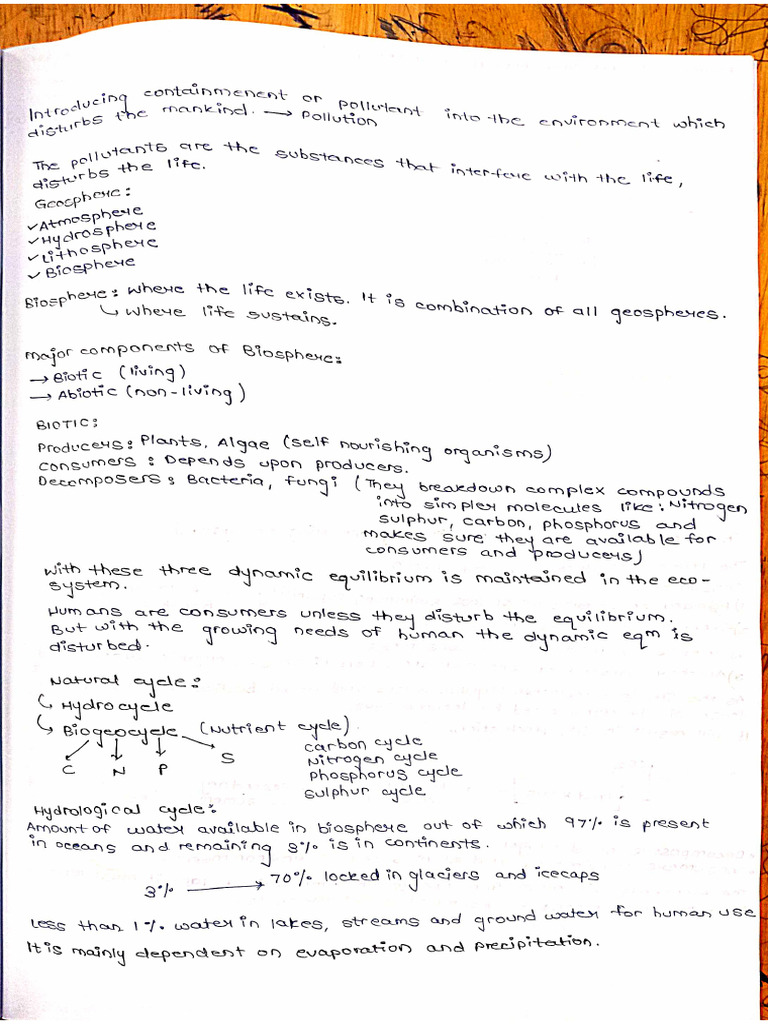 Introducing containmenent or pollutant into the environment which
disturbs the mankind. → Pollution
The pollutants are the substances that interfere with the life,
disturbs the life.
Geosphere:
✓Atmosphere
✓Hydrosphere
✓Lithosphere
✓Biosphere
Biosphere: Where the life exists. It is combination of all geospheres.
↳ where life sustains.
Major components of Biosphere:
→ Biotic (living)
→ Abiotic (non-living)
BIOTIC:
Producers: Plants, Algae (self nourishing organisms)
Consumers: Depends upon producers.
Decomposers: Bacteria, fungi (They breakdown complex compounds
into simpler molecules like: Nitrogen
sulphur, carbon, phosphorus and
makes sure they are available for
consumers and producers)
With these three dynamic equilibrium is maintained in the eco-
system.
Humans are consumers unless they disturb the equilibrium.
But with the growing needs of human the dynamic eqm is
disturbed.
Natural cycle:
↳ Hydrocycle
↳ Biogeocycle (Nutrient cycle)
C N P S
carbon cycle
Nitrogen cycle
Phosphorus cycle
Sulphur cycle
Hydrological cycle:
Amount of water available in biosphere out of which 97% is present
in oceans and remaining 3% is in continents.
3% → 70% locked in glaciers and icecaps
Less than 1% water in lakes, streams and ground water for human use
It is mainly dependent on evaporation and precipitation.